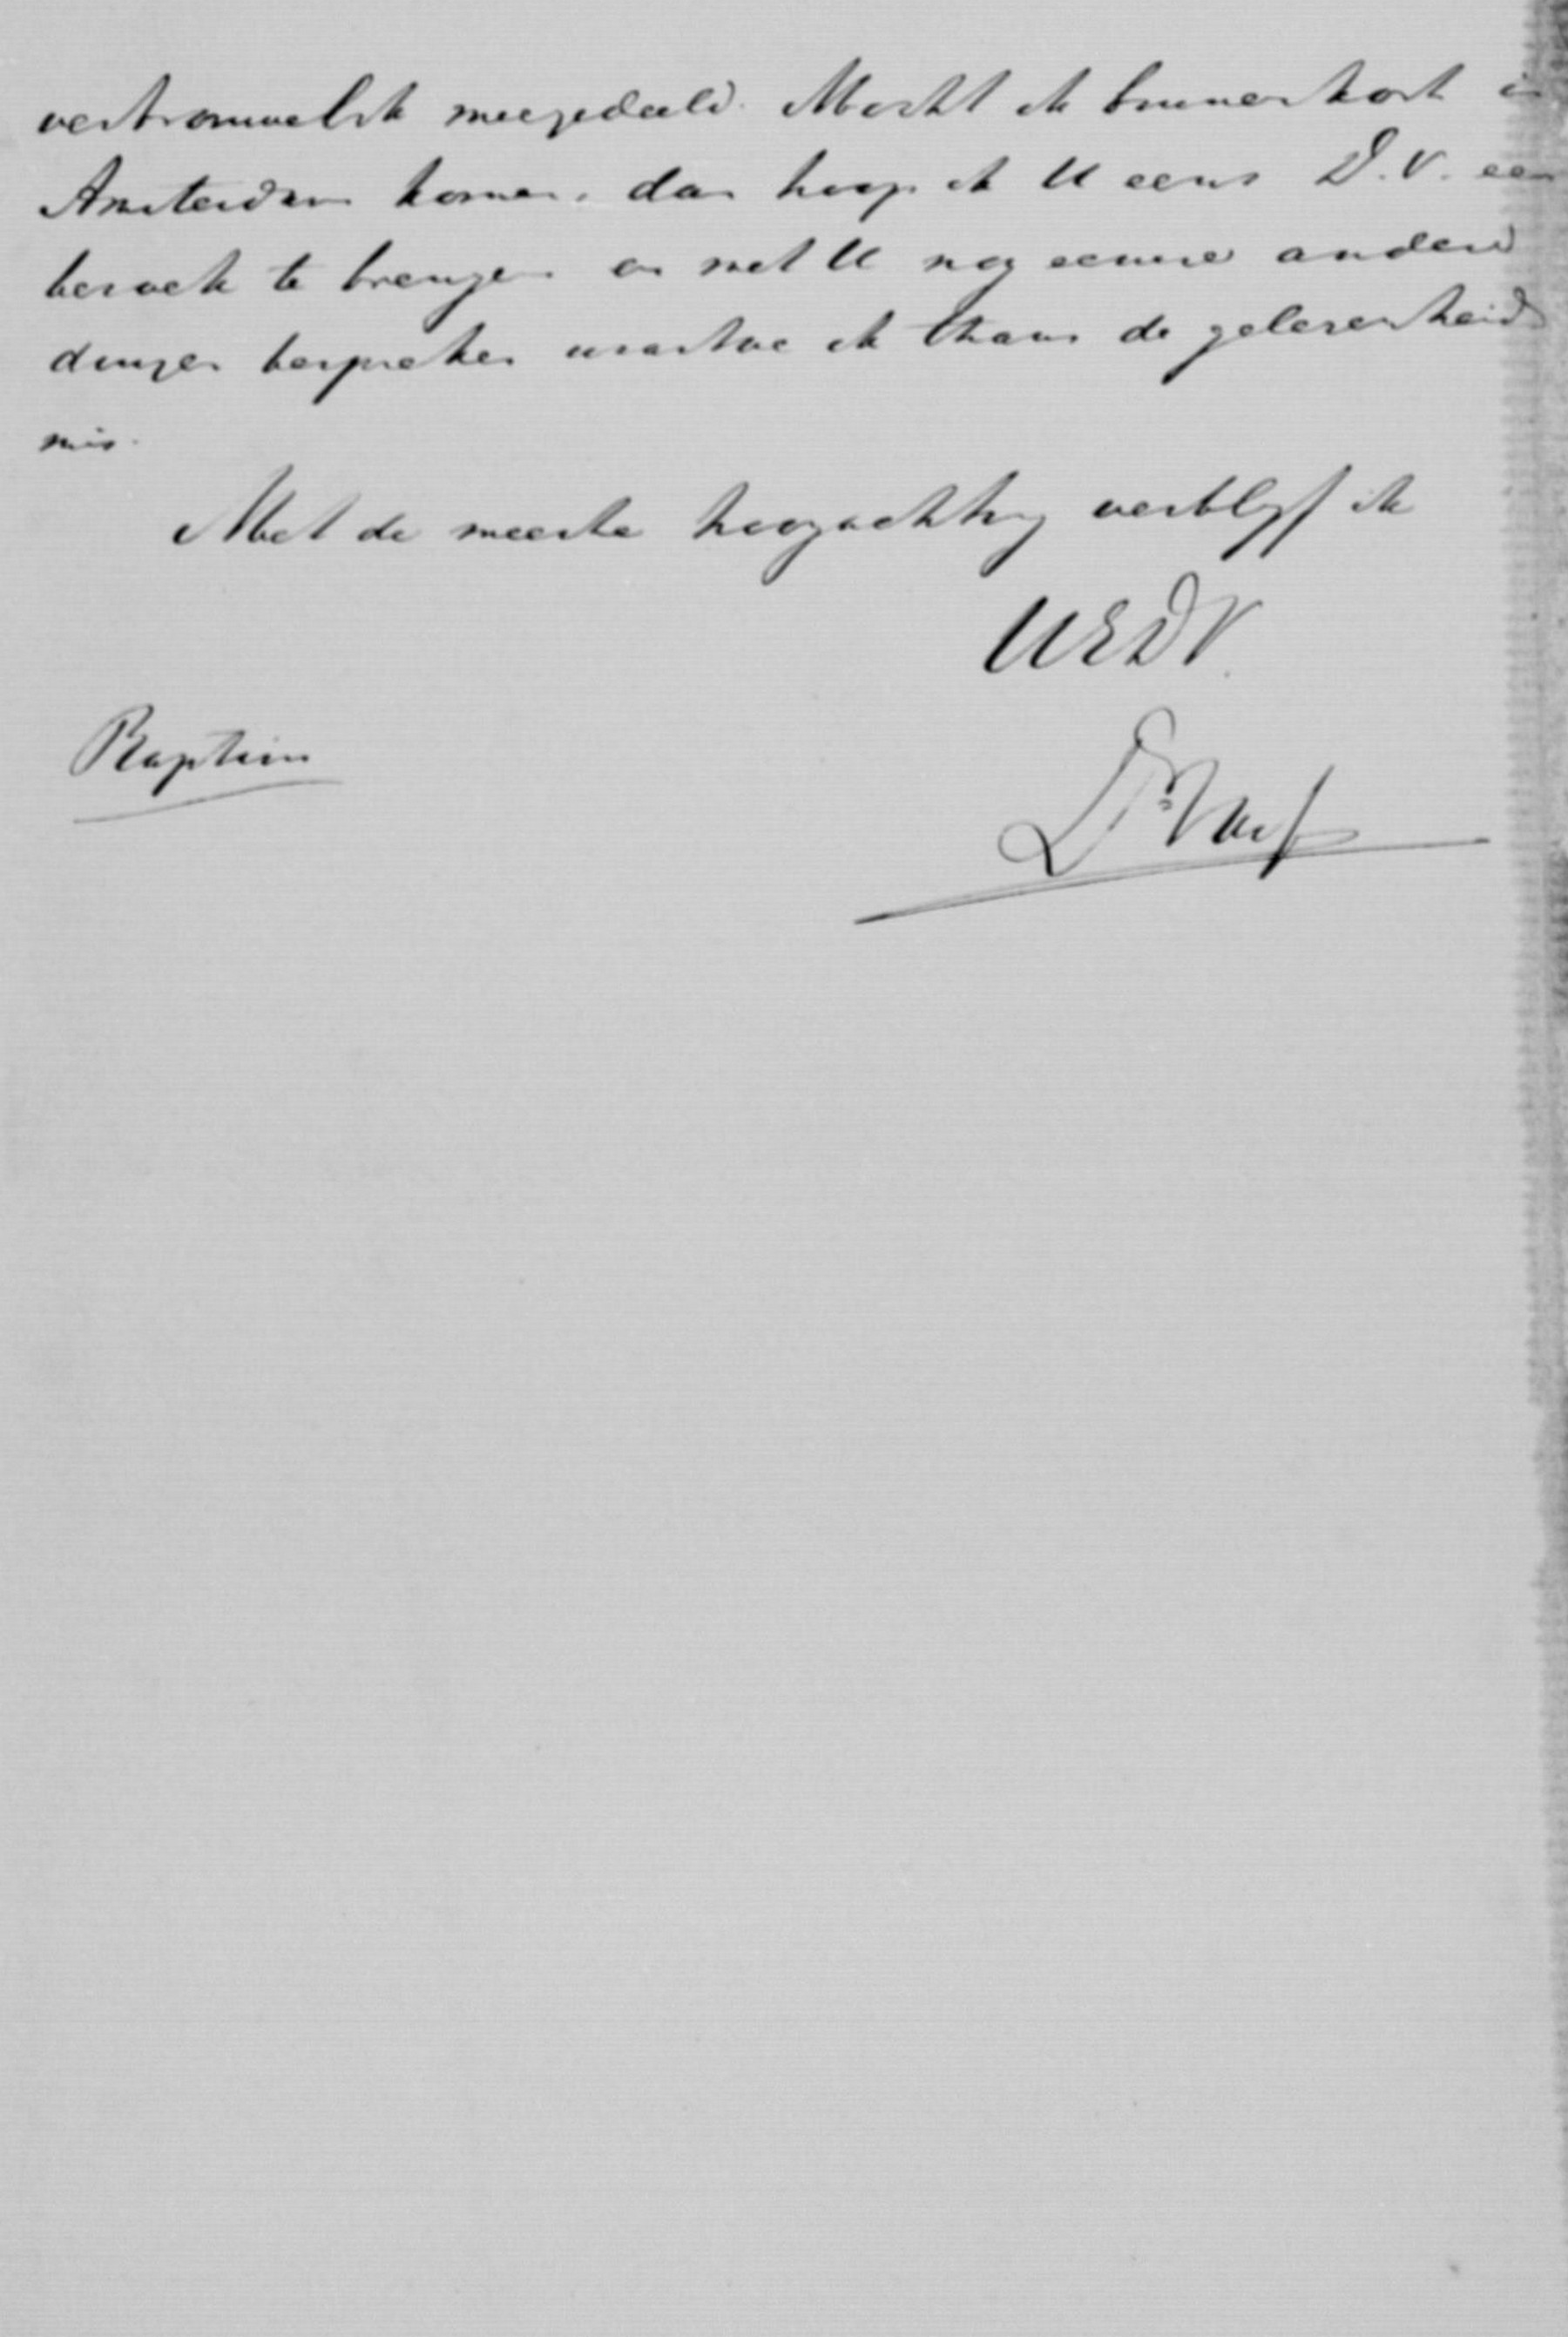 vertrouwelijk meegedeeld. Mocht ik binnenkort in
Amsterdam komen, dan hoop ik U eens D.V. een
bezoek te brengen en met U nog eenige andere
dingen bespreken waartoe ik thans de gelegenheid
mis.
Met de meeste hoogachting verblijf ik
UEDV.
Raptim